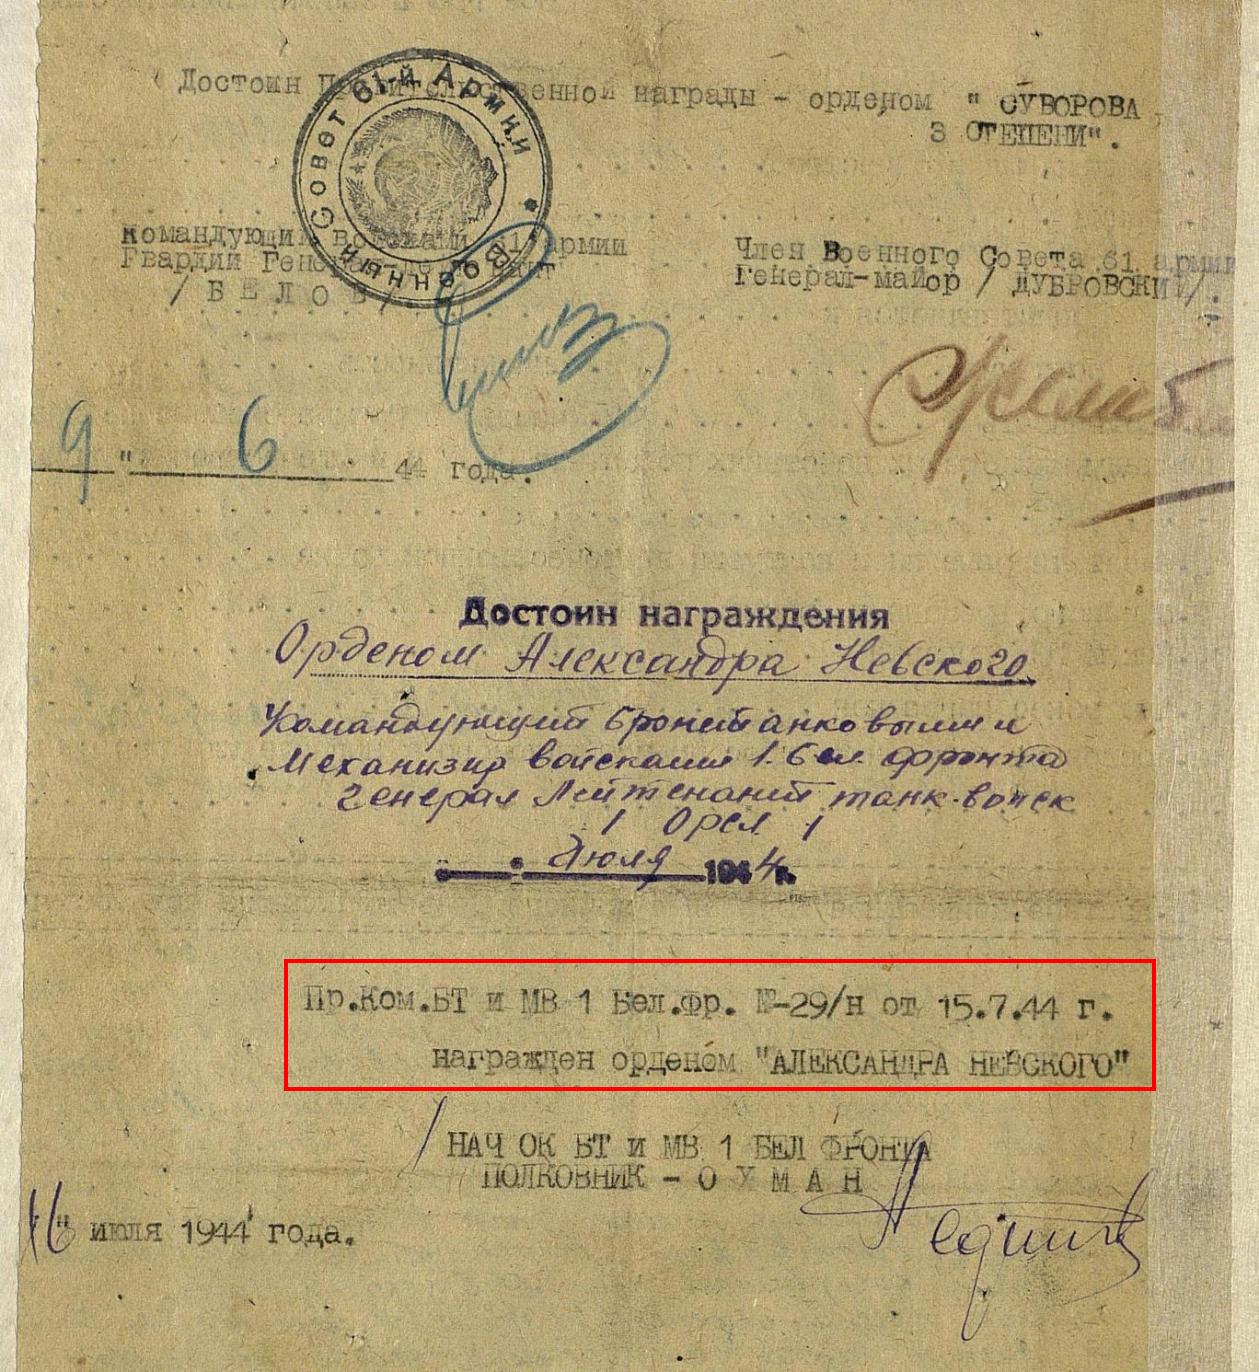 Достоин Правительственной награды - орденом " СУВОРОВА
3 СТЕПЕНИ".
Военный Совет 61-й Армии
командующий войсками 61 армии
Гвардии Генерал-лейтенант
/ Б Е Л О В /
Член Военного Совета 61 армии
Генерал-майор / ДУБРОВСКИЙ/.
9 " 6 44 года.
Достоин награждения
Орденом Александра Невского
Командующий бронетанковыми и
механизир войсками 1. Бел. фронта
генерал лейтенант танк. войск
/ Орел /
" " Июля 1944 г.
Пр.Ком.БТ и МВ 1 Бел.Фр. №-29/н от 15.7.44 г.
награжден орденом "АЛЕКСАНДРА НЕВСКОГО"
/ НАЧ ОК БТ и МВ 1 БЕЛ ФРОНТА
ПОЛКОВНИК - О Х М А Н
16" июля 1944 года.